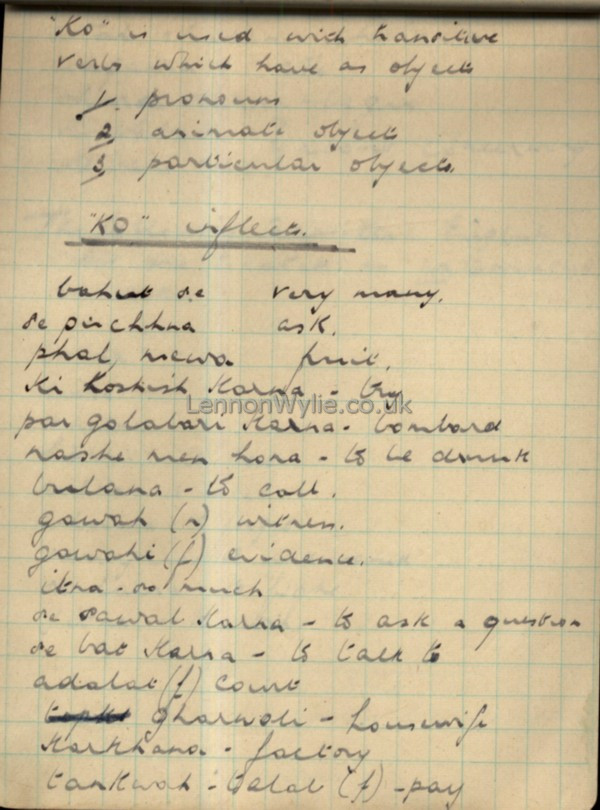 "Ko" is used with transitive
verbs which have as objects
1. pronouns
2. animate object
3. particular objects.
"KO" inflects.
bahut se very many.
se puchhna ask.
phal, mewa fruit.
Ki Koshish Karna - try
LennonWylie.co.uk
par golabari Karna - bombard
nashe men hona - to be drunk
bulana - to call.
gawah (n) witness.
gawahi (f) evidence.
itna - so much
se sawal Karna - to ask a question
se bat Karna - to talk to
adalat (f) court
gharwali - housewife
Karkhana - factory
tankwah - talab (f) - pay